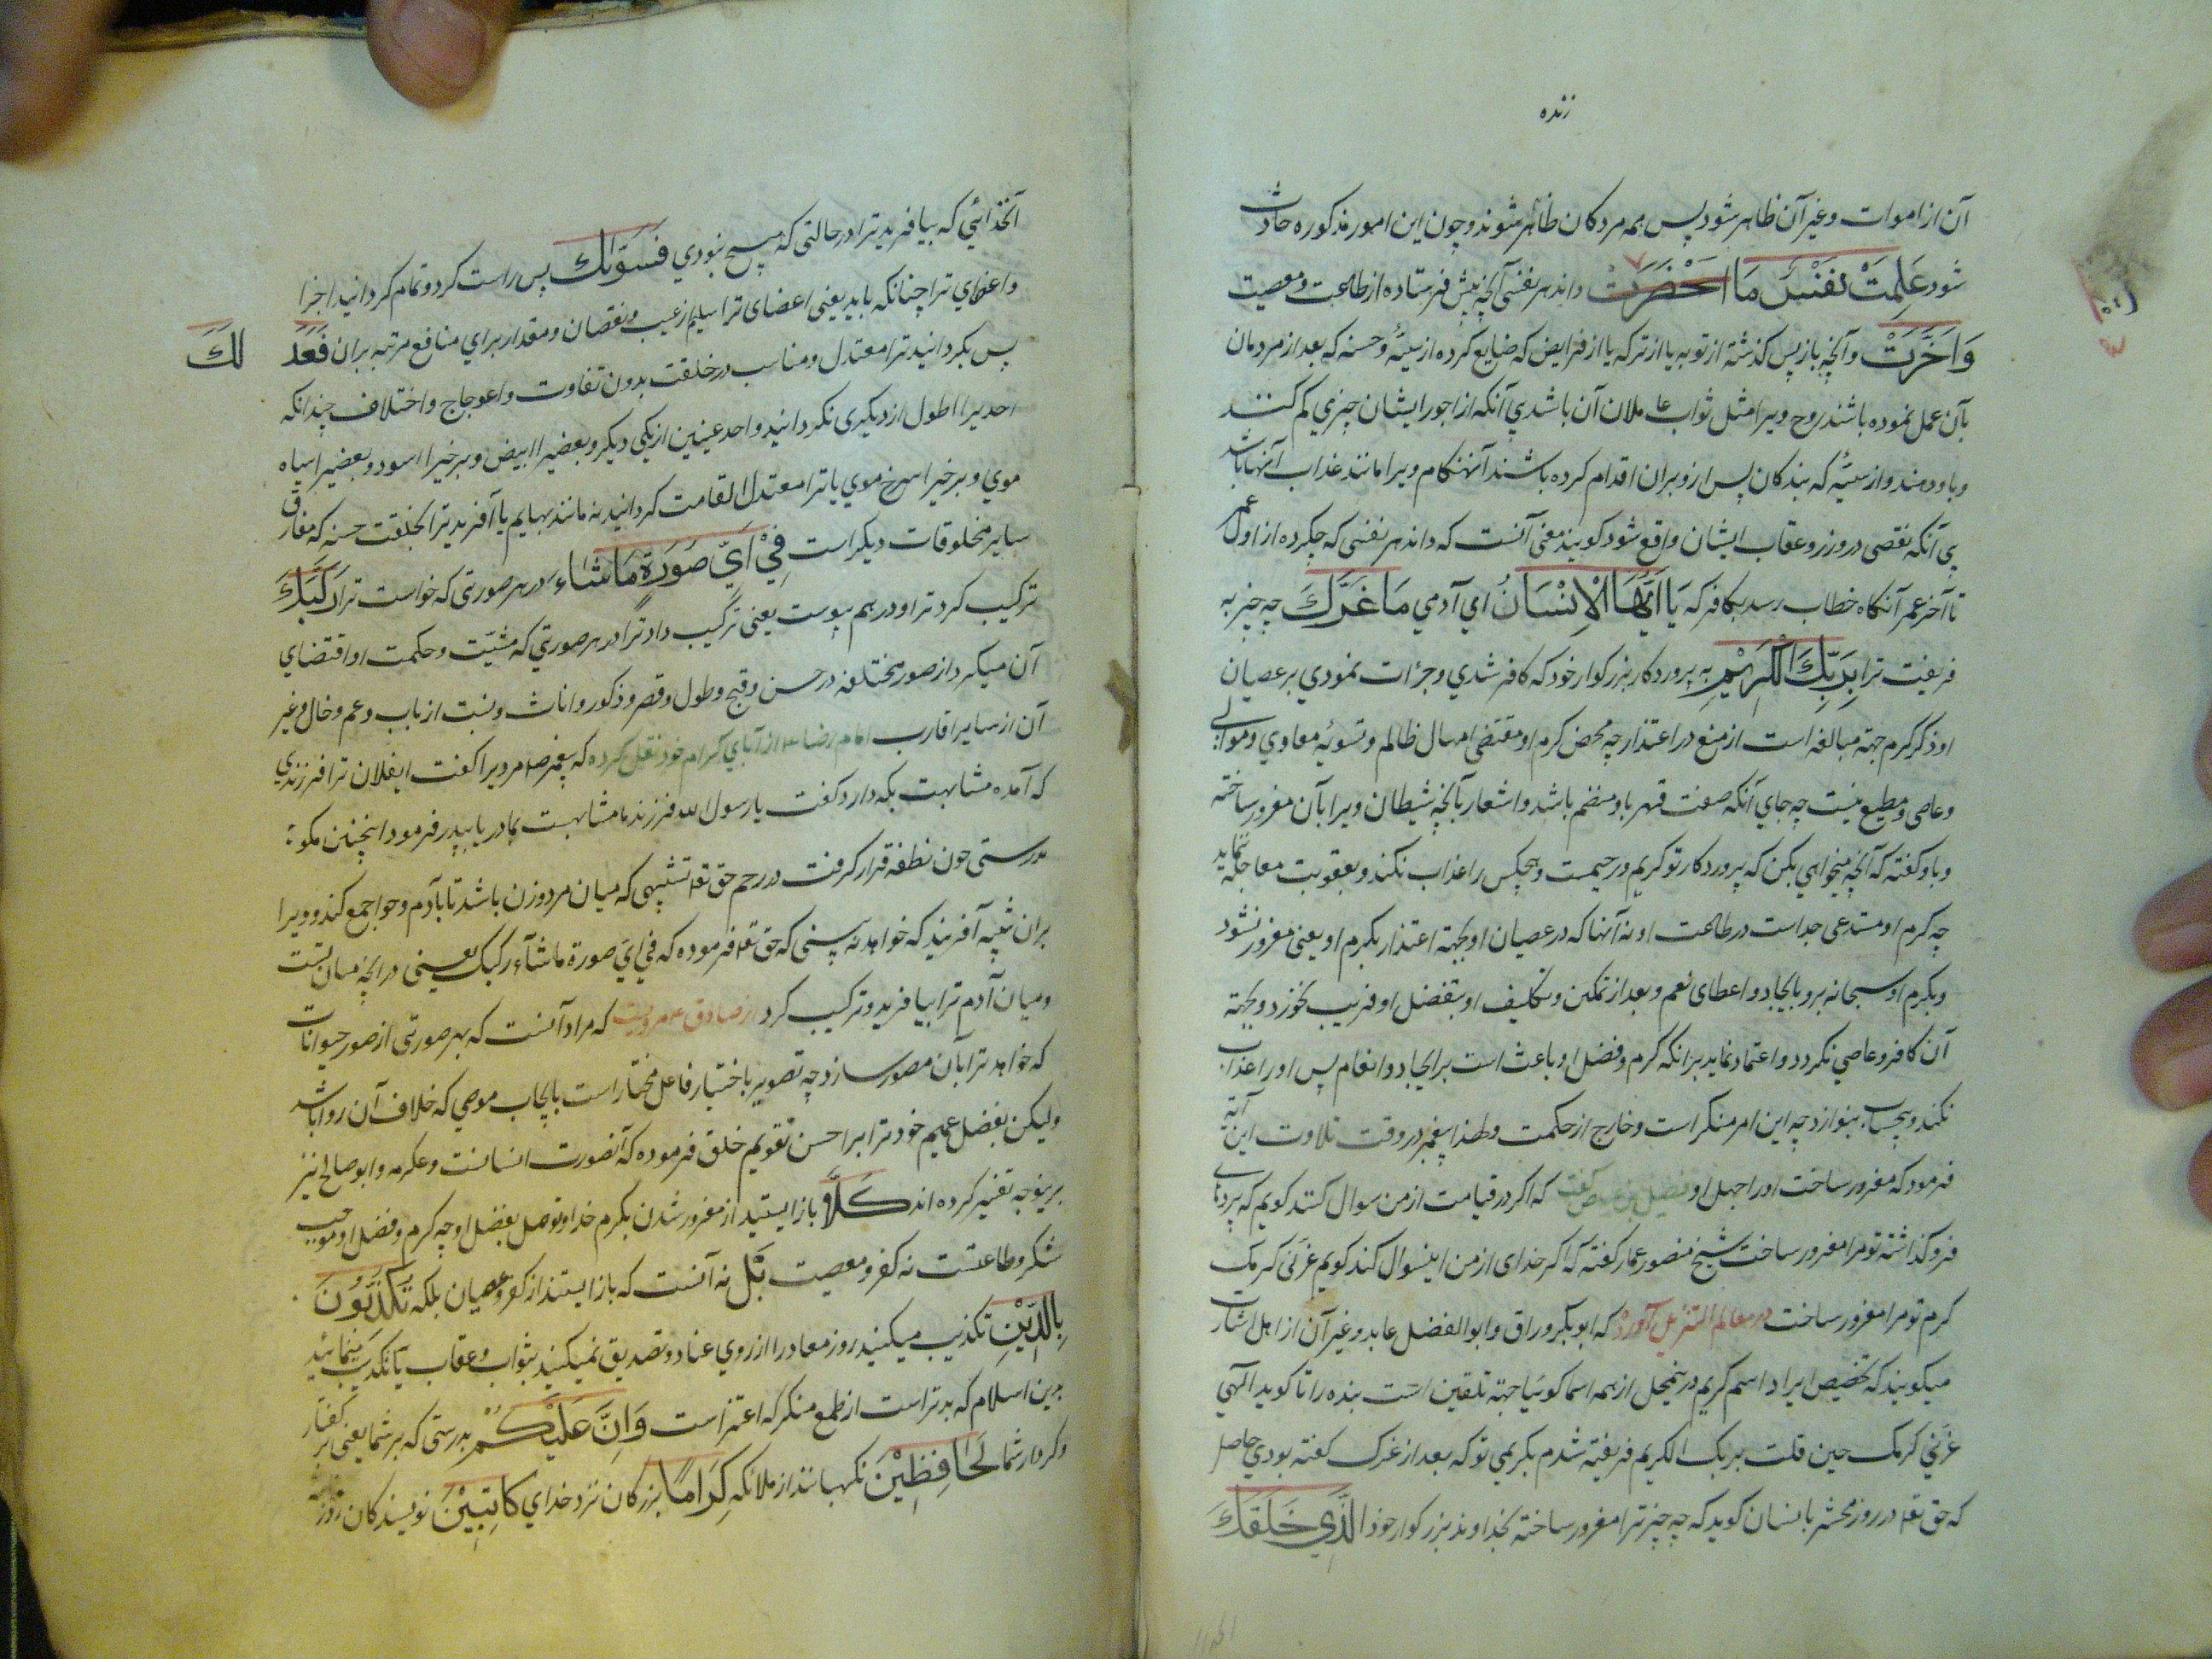 زنده
آن از اموات و غیر آن ظاهر شود پس همه مردکان ظاهر شوند و چون این امور مذکوره حادث
شود عَلِمَتْ نَفْسٌ مَا اَحْضَرَتْ داند هر نفسی آنچه پیش فرستاده از طاعت و معصیت
وَاَخَّرَتْ و آنچه باز پس کذشته از توبه یا از ترکه یا از فرایض که ضایع کرده از سیئه و حسنه که بعد از مردمان
بآن عمل نموده باشند روح ویرا مثل ثواب عاملان آن باشد بي آنکه از اجور ایشان چیزي کم کنند
و باو دهند و از سیئه که بندکان پس از وبران اقدام کرده باشند آنهنکام ویرا مانند عذاب آنها باشد
بي آنکه نقصی در وزر و عقاب ایشان واقع شود کویند معنی آنست که داند هر نفسی که چکرده از اول عمر
تا آخر عمر آنکاه خطاب رسد بکافر که یَا اَیُّهَا الْاِنْسَانُ اي آدمي مَا غَرَّكَ چه چیز به
فریفت ترا بِرَبِّكَ الْكَرِیْمِ به پروردکار بزرکوار خود که کافر شدي و جرات نمودي بر عصیان
او ذکر کرم جهة مبالغه است از منع در اعتذار چه محض کرم او مقتضی امهال ظالم و تسویه معادي و موالي
و عاصی و مطیع نیست چه جاي آنکه صفت قهر باو منضم باشد و اشعار بآنچه شیطان ویرا بآن مغرور ساخته
و باو کفته که آنچه میخواهي بکن که پروردکار تو کریم و رحیمست و هیچکس را عذاب نکند و بعقوبت معاجله ننماید
چه کرم او مستدعی جد است در طاعت او نه آنها که در عصیان او بجهة اعتذار بکرم او یعنی مغرور نشود
و بکرم او سبحانه برو بایجاد و اعطای نعم و بعد از تمکین و تکلیف او بتفضل او فریب نخورد و بجهة
آن کافر و عاصي نکردد و اعتماد ننماید بر انکه کرم و فضل او باعث است بر ایجاد و انعام پس او را عذاب
نکند و بی‌حساب بنوازد چه این امر منکر است و خارج از حکمت و لهذا پیغمبر در وقت تلاوت این آیه
فرمود که مغرور ساخت او را جهل او فضیل بن عیاض کفت که اکر در قیامت از من سوال کنند کویم که پردهای
فرو کذاشته تو مرا مغرور ساخت شیخ منصور عمار کفته که اکر خدای از من اینسوال کند کویم غرّنی کرمک
کرم تو مرا مغرور ساخت در معالم التنزیل آورده که ابوبکر وراق و ابوالفضل عابد و غیر آن از اهل اشارت
میکویند که تخصیص ایراد اسم کریم درینمحل از همه اسما کوئیا جهة تلقین است بنده را تا کوید الهي
غرّني کرمک حین قلت بربک الکریم فریفته شدم بکریمي تو که بعد از غرّک کفته بودي حاصل
که حق تعا در روز محشر بانسان کوید که چه چیز ترا مغرور ساخته بخداوند بزرکوار خود الَّذِي خَلَقَكَ
آنخدائي که بیافرید ترا در حالتی که هیچ نبودي فَسَوّٰیكَ پس راست کرد و تمام کردانید اجزا
و اعضاي ترا چنانکه باید یعنی اعضای ترا سلیم از عیب و نقصان و مقدار براي منافع مرتبه بران فَعَدَ لَكَ
پس بکردانید ترا معتدل و مناسب در خلقت بدون تفاوت و اعوجاج و اختلاف چندانکه
احدیرا اطول از دیکری نکردانید و احد عینین از یکي دیکر و بعضیرا ابیض و برخیرا اسود و بعضیرا سیاه
موي و برخیرا سرخ موي یا ترا معتدل القامت کردانید نه مانند بهایم یا آفرید ترا بخلقت حسنه که مفارق
سایر مخلوقات دیکر است فِيْ اَيِّ صُوْرَةٍ مَا شَاءَ در هر صورتی که خواست ترا رَكَّبَكَ
ترکیب کرد ترا و در هم پیوست یعنی ترکیب داد ترا در هر صورتي که مشیّت و حکمت او اقتضاي
آن میکرد از صور مختلفه در حسن و قبح و طول و قصر و ذکور و اناث و نسبت از باب و عم و خال و غیر
آن از سایر اقارب امام رضا ۴ از آباي کرام خود نقل کرده که پیغمبر ص مر ویرا کفت ایفلان ترا فرزندي
که آمده مشابهت بکه دارد کفت یا رسول الله فرزند ما مشابهست بمادر یا بپدر فرمود اینچنین مکو
بدرستی چون نطفه قرار کرفت در رحم حق تعا تشبیهی که میان مرد و زن باشد تا بآدم و حوا جمع کند و ویرا
بران شبیه آفریند که خواهد نه بینی که حق تعا فرموده که في اي صورة ما شآء رکبک یعنی در انچه میان تست
و میان آدم ترا بیافرید و ترکیب کرد از صادق ۴ مرویست که مراد آنست که بهر صورتی از صور حیوانات
که خواهد ترا بآن مصور سازد چه تصویر باختیار فاعل مختار است بایجاب موصي که خلاف آن روا باشد
ولیکن بفضل عمیم خود ترا بر احسن تقویم خلق فرموده که آنصورت انسانست و عکرمه و ابو صالح نیز
برینوجه تفسیر کرده اند كَلَّا باز ایستید از مغرور شدن بکرم خدا و توصل بفضل او چه کرم و فضل او موجب
شکر و طاعتست نه کفر و معصیت بَلْ نه آنست که باز ایستند از کفر و عصیان بلکه تُكَذِّبُوْنَ
بِالدِّیْنِ تکذیب میکنید روز معاد را از روي عناد و تصدیق نمیکنید بثواب و عقاب یا تکذیب مینمائید
بدین اسلام که بدتر است از طمع منکر که اغترار است وَاِنَّ عَلَیْكُمْ بدرستی که بر شما یعنی بر کفتار
و کردار شما لَحَافِظِیْنَ نکهبانند از ملائکه كِرَامًا بزرکان نزد خداي كَاتِبِیْنَ نویسندکان روز